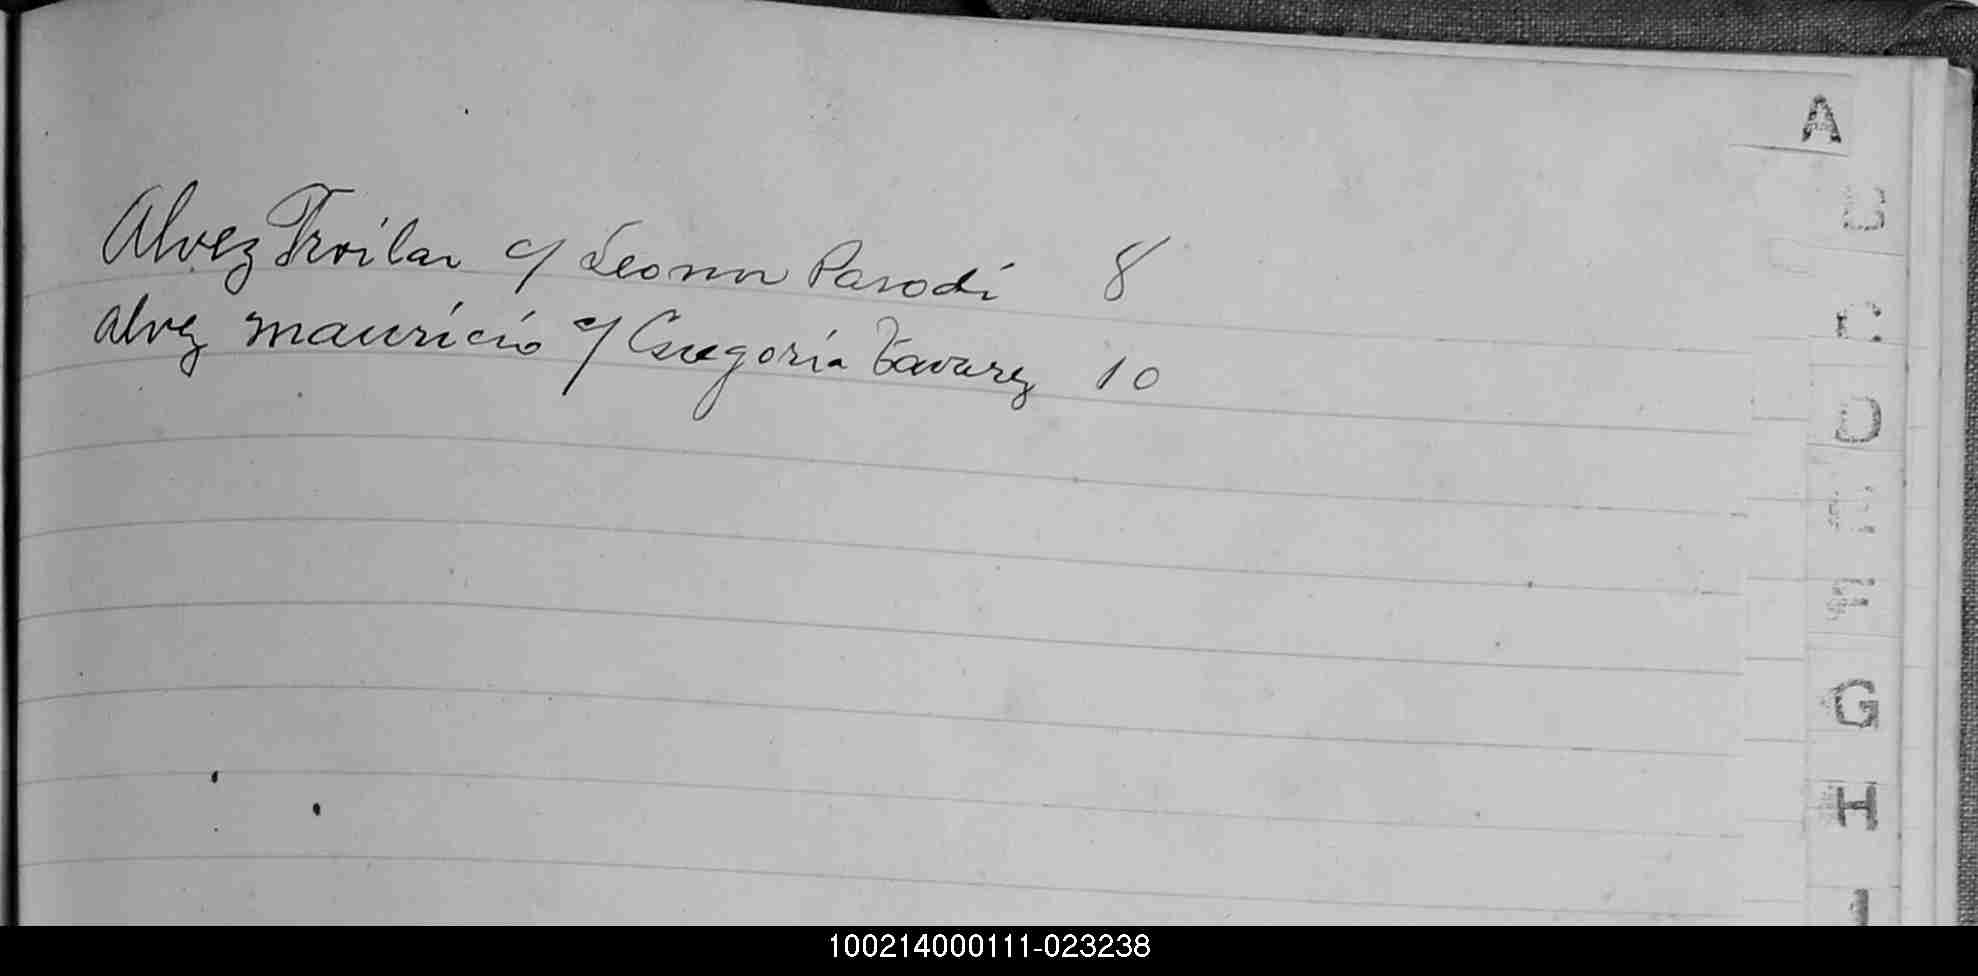 A
Alvez Froilan c/ Leonor Parodi 8
Alvez Mauricio c/ Gregoria Tavarez 10
C
D
G
H
I
100214000111-023238